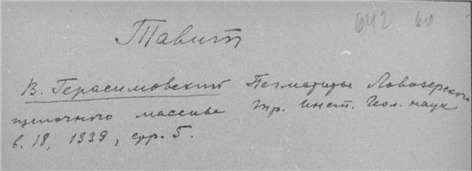 642 60
Тавит
В. Герасимовский Пегматиты Ловозерского
щелочного массива Тр. Инст. Геол. наук
в. 18, 1939, стр. 5.